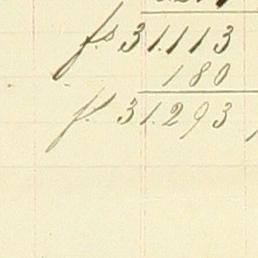 f.s 31.113
180
f. 31.293